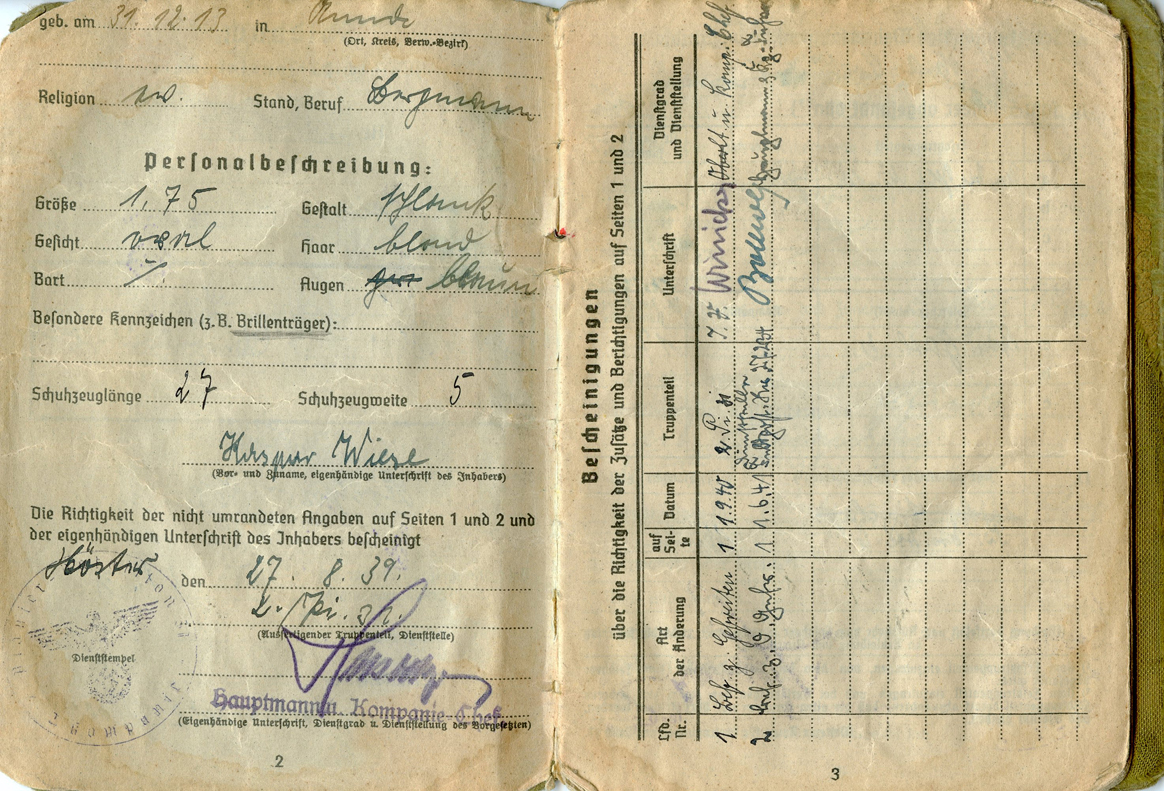 geb. am 31. 12. 13 in
(Ort, Kreis, Verw.-Bezirk)
Religion ev. Stand, Beruf Bergmann
Personalbeschreibung:
Größe 1,75 Gestalt schlank
Gesicht oval Haar blond
Bart ./. Augen blau
Besondere Kennzeichen (z.B. Brillenträger):
Schuhzeuglänge 27 Schuhzeugweite 5
Kaspar Wiese
(Vor- und Zuname, eigenhändige Unterschrift des Inhabers)
Die Richtigkeit der nicht umrandeten Angaben auf Seiten 1 und 2 und
der eigenhändigen Unterschrift des Inhabers bescheinigt
Höxter den 27. 8. 39.
2. / Pi. 31.
(Ausfertigender Truppenteil, Dienststelle)
Dienststempel
Hauptmann u. Kompanie-Chef
(Eigenhändige Unterschrift, Dienstgrad u. Dienststellung des Vorgesetzten)
2
Bescheinigungen
über die Richtigkeit der Zusätze und Berichtigungen auf Seiten 1 und 2
Lfd. Nr. Art der Änderung auf Seite Datum Truppenteil Unterschrift Dienstgrad und Dienststellung
1 Bef. z. Gefreiten 1 1.9.40 2. Pi. 31 I. V. Oberlt u. Komp. Chef
2 1 1.6.41
3